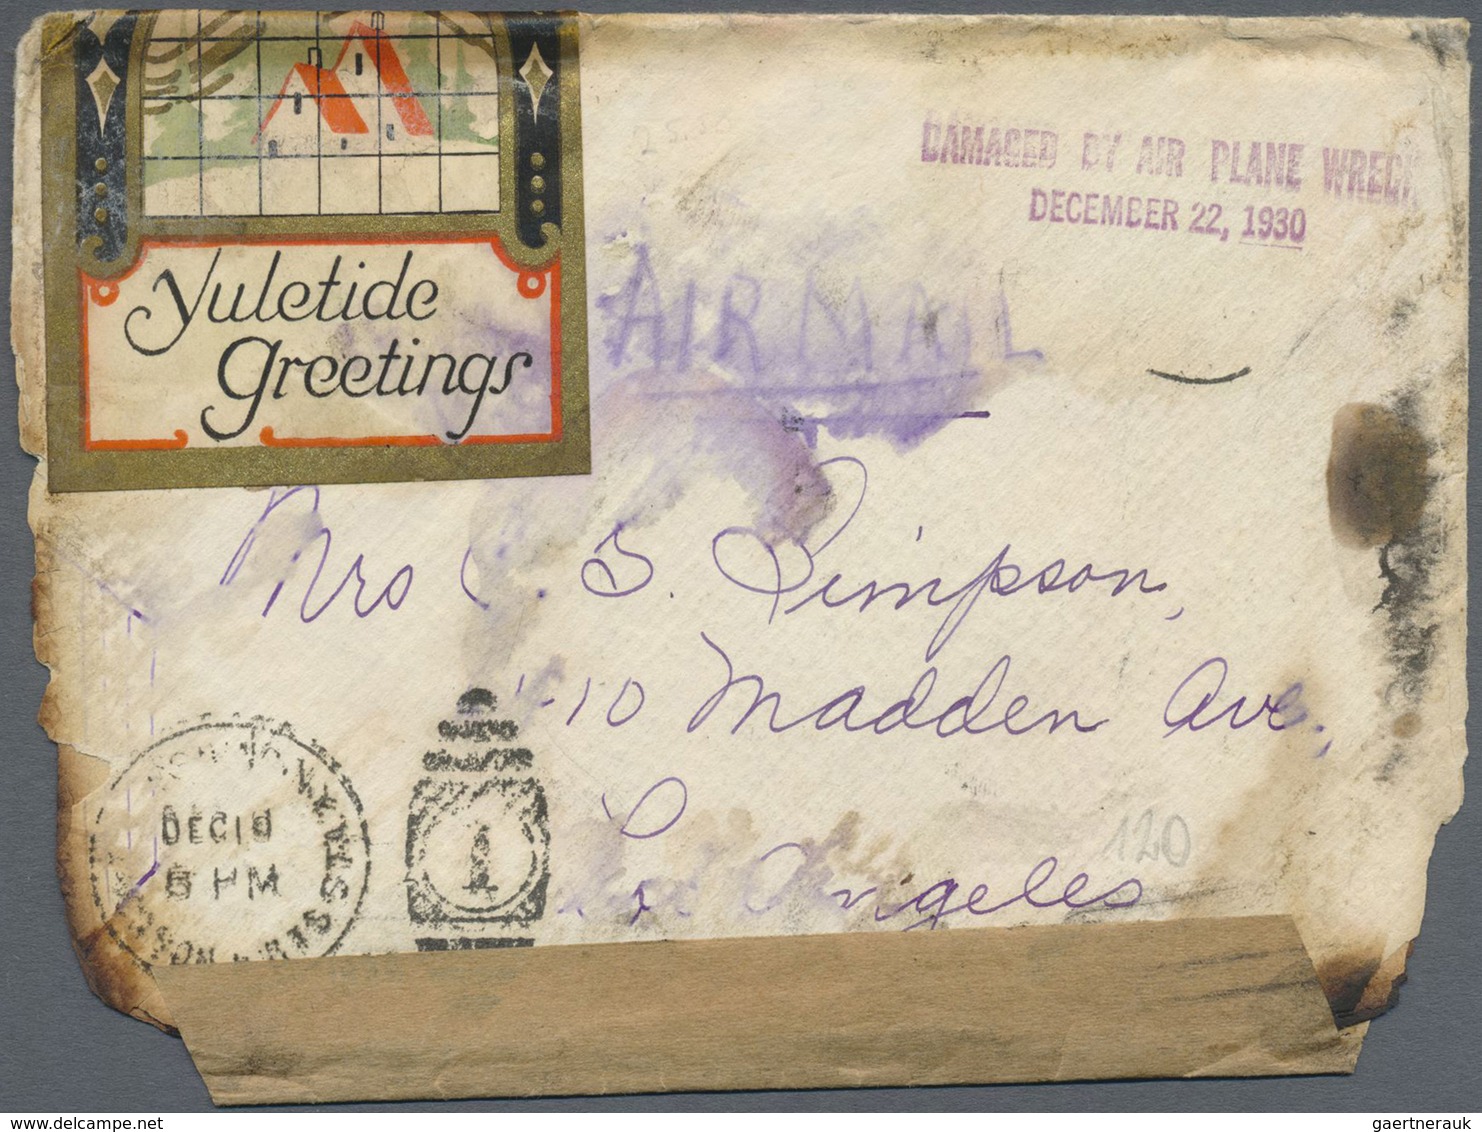 DAMAGED BY AIR PLANE WRECK
DECEMBER 22, 1930
Yuletide
Greetings
AIR MAIL
Mrs C. S. Simpson,
10 Madden Ave.,
Los Angeles
DEC 18
5 PM
STA
1
120
gaertnerauk